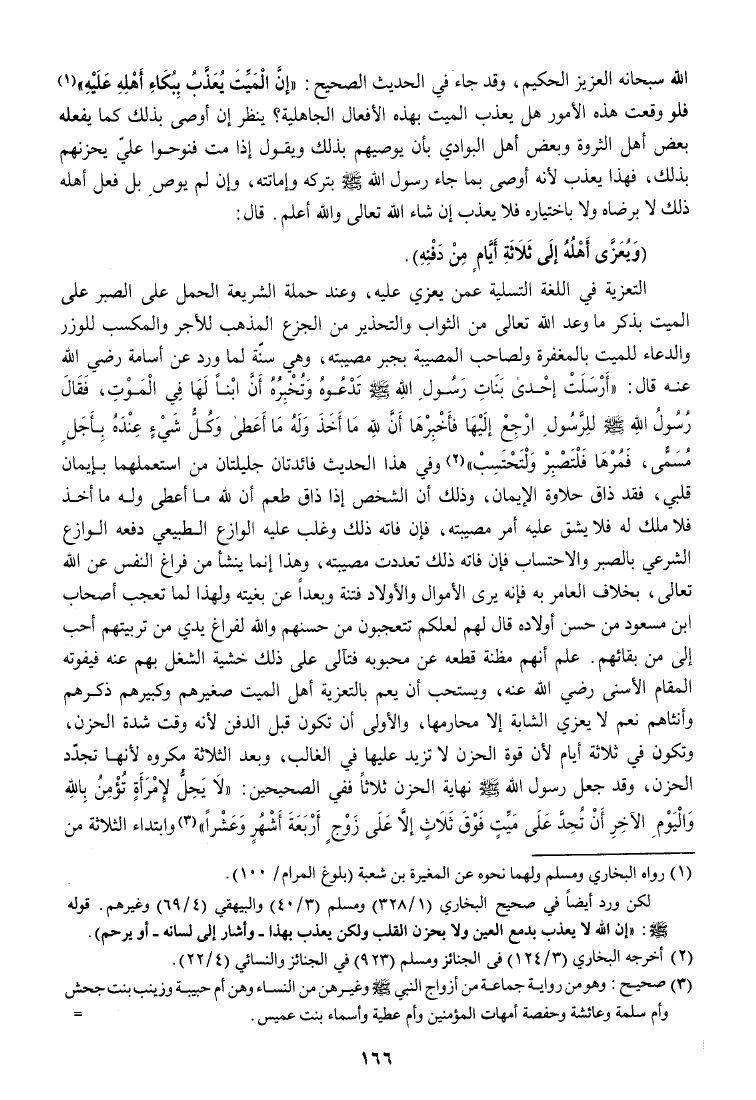 الله سبحانه العزيز الحكيم، وقد جاء في الحديث الصحيح: «إِنَّ الْمَيِّتَ يُعَذَّبُ بِبُكَاءِ أَهْلِهِ عَلَيْهِ»(١)
فلو وقعت هذه الأمور هل يعذب الميت بهذه الأفعال الجاهلية؟ ينظر إن أوصى بذلك كما يفعله
بعض أهل الثروة وبعض أهل البوادي بأن يوصيهم بذلك ويقول إذا مت فنوحوا عليّ يحزنهم
بذلك، فهذا يعذب لأنه أوصى بما جاء رسول الله ﷺ بتركه وإماتته، وإن لم يوص بل فعل أهله
ذلك لا برضاه ولا باختياره فلا يعذب إن شاء الله تعالى والله أعلم. قال:
(وَيُعَزَّى أَهْلُهُ إِلَى ثَلَاثَةِ أَيَّامٍ مِنْ دَفْنِهِ).
التعزية في اللغة التسلية عمن يعزي عليه، وعند حملة الشريعة الحمل على الصبر على
الميت بذكر ما وعد الله تعالى من الثواب والتحذير من الجزع المذهب للأجر والمكسب للوزر
والدعاء للميت بالمغفرة ولصاحب المصيبة بجبر مصيبته، وهي سنّة لما ورد عن أسامة رضي الله
عنه قال: «أَرْسَلَتْ إِحْدىٰ بَنَاتِ رَسُولِ اللهِ ﷺ تَدْعُوهُ وَتُخْبِرُهُ أَنَّ ابْناً لَهَا فِي الْمَوْتِ، فَقَالَ
رَسُولُ اللهِ ﷺ لِلرَّسُولِ ارْجِعْ إِلَيْهَا فَأَخْبِرْهَا أَنَّ لِلّٰهِ مَا أَخَذَ وَلَهُ مَا أَعْطىٰ وَكُلُّ شَيْءٍ عِنْدَهُ بِأَجَلٍ
مُسَمًّى، فَمُرْهَا فَلْتَصْبِرْ وَلْتَحْتَسِبْ»(٢) وفي هذا الحديث فائدتان جليلتان من استعملهما بإيمان
قلبي، فقد ذاق حلاوة الإيمان، وذلك أن الشخص إذا ذاق طعم أن لله ما أعطى وله ما أخذ
فلا ملك له فلا يشق عليه أمر مصيبته، فإن فاته ذلك وغلب عليه الوازع الطبيعي دفعه الوازع
الشرعي بالصبر والاحتساب فإن فاته ذلك تعددت مصيبته، وهذا إنما ينشأ من فراغ النفس عن الله
تعالى، بخلاف العامر به فإنه يرى الأموال والأولاد فتنة وبعداً عن بغيته ولهذا لما تعجب أصحاب
ابن مسعود من حسن أولاده قال لهم لعلكم تتعجبون من حسنهم والله لفراغ يدي من تربيتهم أحب
إلى من بقائهم. علم أنهم مظنة قطعه عن محبوبه فتآلى على ذلك خشية الشغل بهم عنه فيفوته
المقام الأسنى رضي الله عنه، ويستحب أن يعم بالتعزية أهل الميت صغيرهم وكبيرهم ذكرهم
وأنثاهم نعم لا يعزي الشابة إلا محارمها، والأولى أن تكون قبل الدفن لأنه وقت شدة الحزن،
وتكون في ثلاثة أيام لأن قوة الحزن لا تزيد عليها في الغالب، وبعد الثلاثة مكروه لأنها تجدّد
الحزن، وقد جعل رسول الله ﷺ نهاية الحزن ثلاثاً ففي الصحيحين: «لَا يَحِلُّ لِإمْرَأَةٍ تُؤْمِنُ بِاللهِ
وَالْيَوْمِ الآخِرِ أَنْ تُحِدَّ عَلَى مَيِّتٍ فَوْقَ ثَلَاثٍ إِلَّا عَلَى زَوْجٍ أَرْبَعَةَ أَشْهُرٍ وَعَشْراً»(٣) وابتداء الثلاثة من
(١) رواه البخاري ومسلم ولهما نحوه عن المغيرة بن شعبة (بلوغ المرام/ ١٠٠).
لكن ورد أيضاً في صحيح البخاري (٣٢٨/١) ومسلم (٤٠/٣) والبيهقي (٦٩/٤) وغيرهم. قوله
ﷺ: «إن الله لا يعذب بدمع العين ولا بحزن القلب ولكن يعذب بهذا ـ وأشار إلى لسانه ـ أو يرحم).
(٢) أخرجه البخاري (١٢٤/٣) فى الجنائز ومسلم (٩٢٣) في الجنائز والنسائي (٢٢/٤).
(٣) صحيح: وهو من رواية جماعة من أزواج النبي ﷺ وغيرهن من النساء وهن أم حبيبة وزينب بنت جحش
وأم سلمة وعائشة وحفصة أمهات المؤمنين وأم عطية وأسماء بنت عميس. =
١٦٦